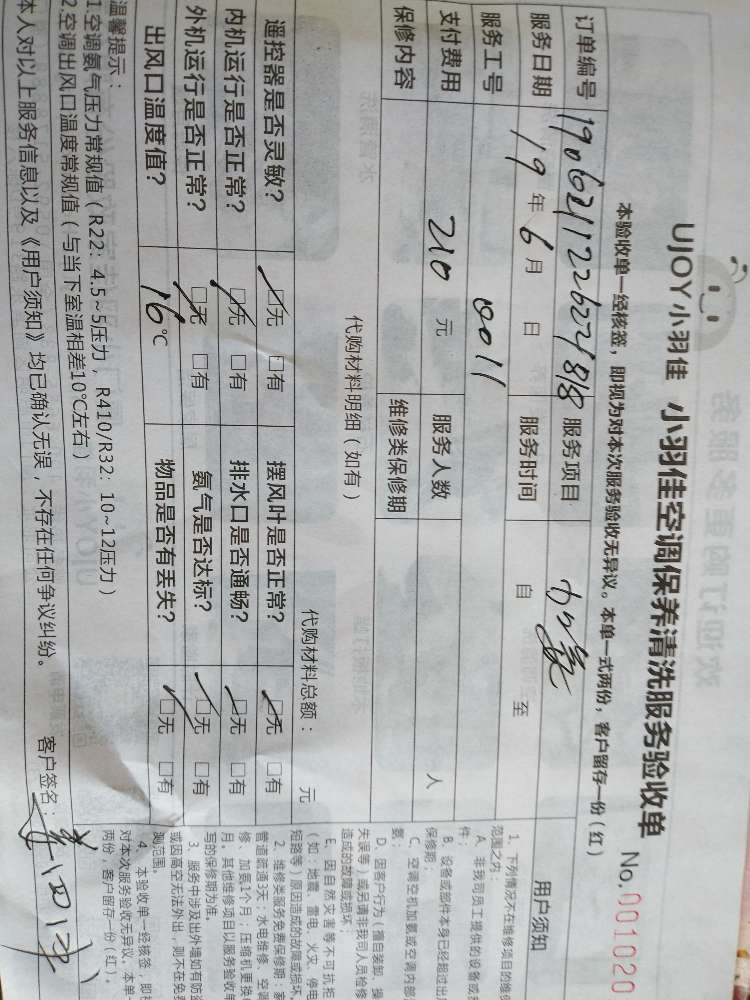 UJOY小羽佳 小羽佳空调保养清洗服务验收单 No. 001020
本验收单一经核签，即视为对本次服务验收无异议。本单一式两份，客户留存一份（红）
订单编号 服务项目
服务日期 19 年 6 月 日 服务时间 自 至
服务工号 0011
支付费用 210 元 服务人数 人
保修内容 维修类保修期
代购材料明细（如有）
代购材料总额： 元
遥控器是否灵敏？ 无 有 摆风叶是否正常？ 无 有
内机运行是否正常？ 无 有 排水口是否通畅？ 无 有
外机运行是否正常？ 无 有 氨气是否达标？ 无 有
出风口温度值？ 16 ℃ 物品是否有丢失？ 无 有
温馨提示：
1.空调氨气压力常规值（R22：4.5~5压力，R410/R32：10~12压力）
2.空调出风口温度常规值（与当下室温相差10℃左右）
本人对以上服务信息以及《用户须知》均已确认无误，不存在任何争议纠纷。 客户签名：
用户须知
1、下列情况不在维修项目的维保
范围之内：
A、非我司员工提供的设备或
件；
B、设备或部件本身已经超过出
保修期；
C、空调空机加氨或空调内部
氨；
D、因客户行为：擅自装卸、操
失误等）或另请非我司人员检修
造成的故障或损坏；
E、因自然灾害等不可抗拒
（如：地震、雷电、火灾、停电
短路等）原因造成的故障或损坏
2、维修类服务免费保修期：
管道疏通3天；水电维修、空调
修、加氨1个月；压缩机更换
月。其他维修项目以服务验收单
写的保修期为准。
3、服务中涉及出外墙如有防盗
或因高空无法外出，则不在免费
测范围。
4、本验收单一经核签，即视
对本次服务验收无异议，本单一
两份，客户留存一份（红）。